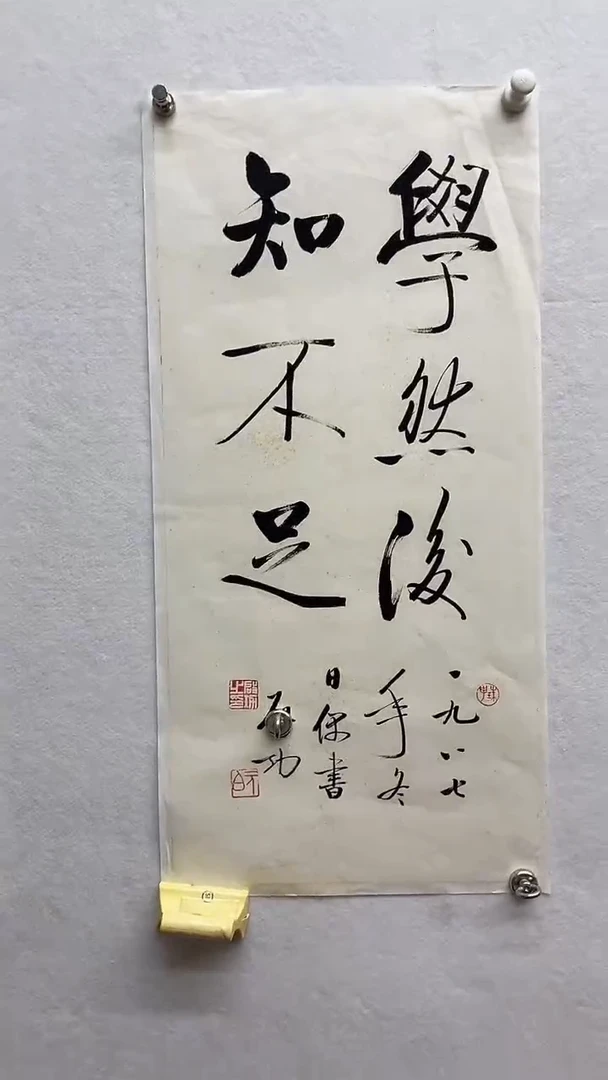 學然後
知不足
一九八七
年冬
日偶書
启功